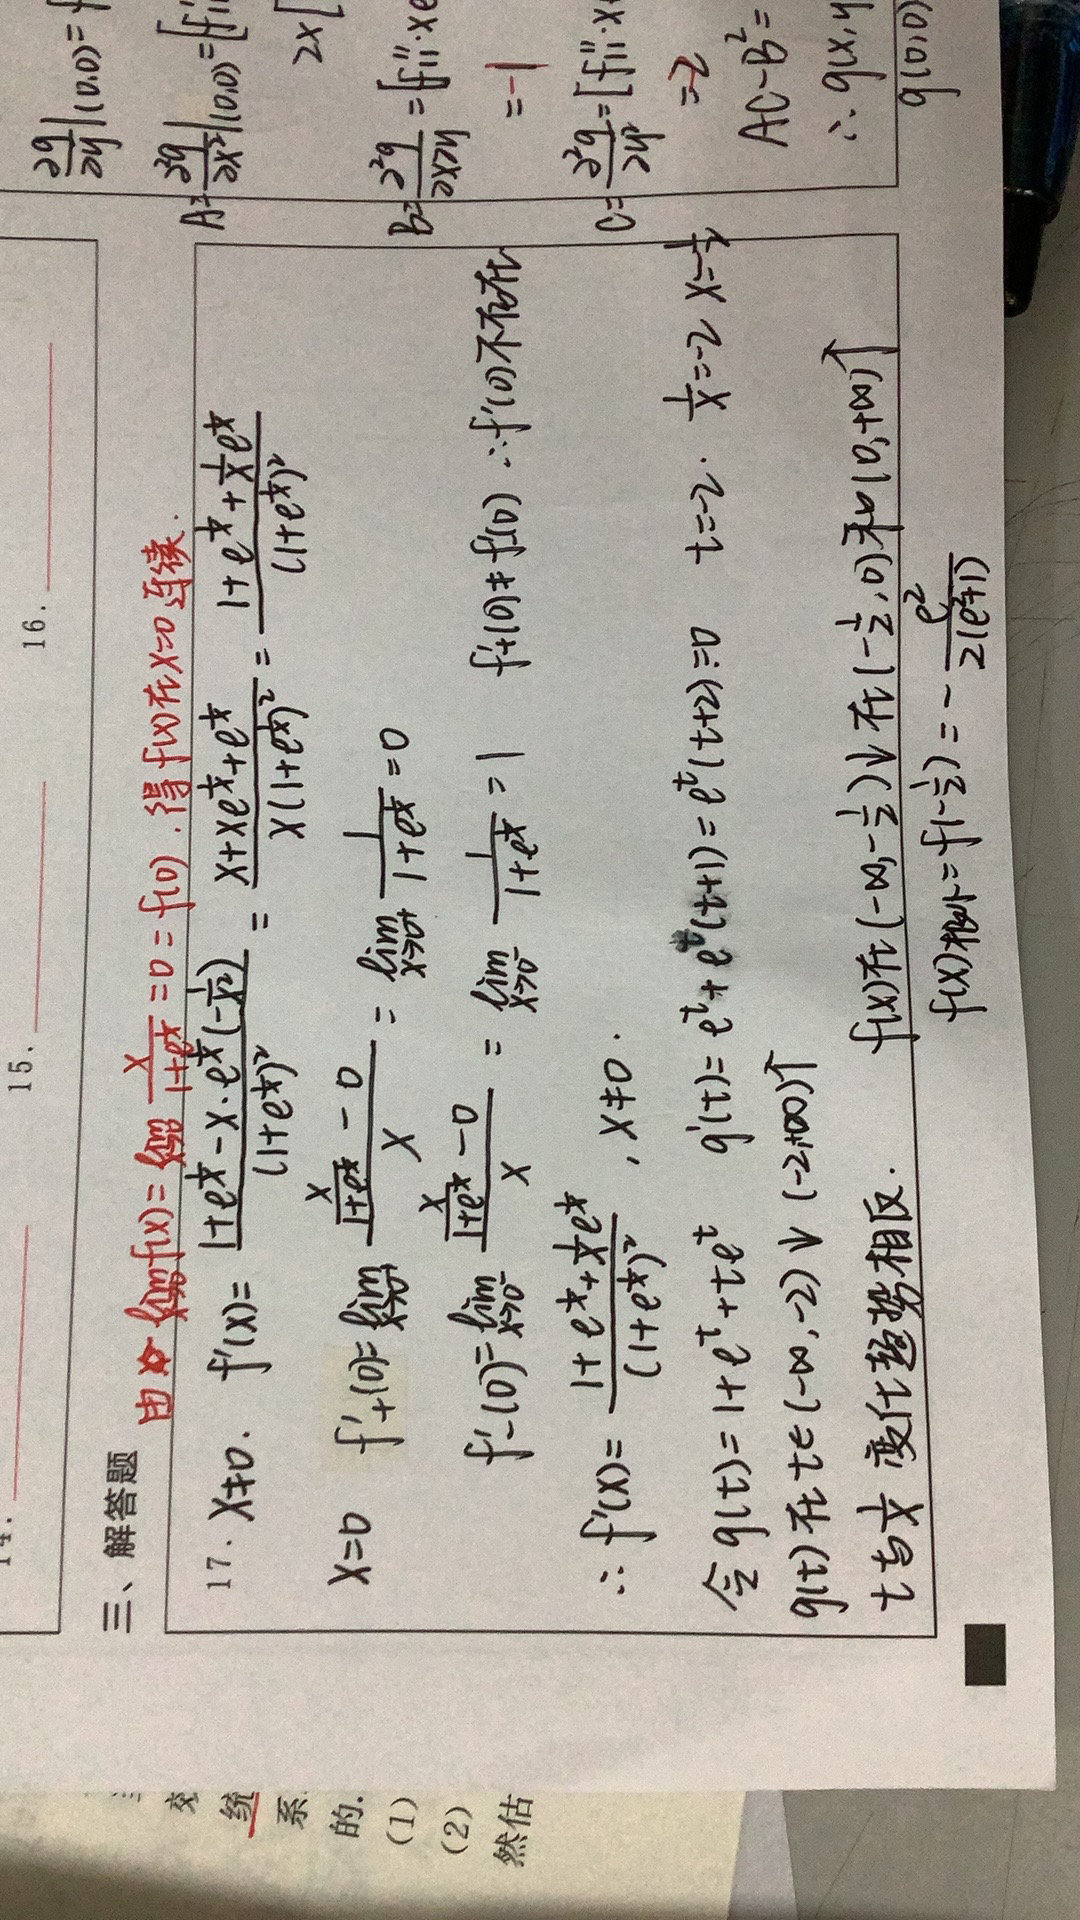 14.
15.
16.
三、解答题
由 lim f(x) = lim x/(1+e^(1/x)) = 0 = f(0). 得 f(x)在x=0连续.
17. x≠0. f'(x) = (1+e^(1/x) - x·e^(1/x)(-1/x²))/(1+e^(1/x))² = (x+xe^(1/x)+e^(1/x))/(x(1+e^(1/x))²) = (1+e^(1/x)+(1/x)e^(1/x))/(1+e^(1/x))²
x=0 f'₊(0) = lim x→0⁺ (x/(1+e^(1/x)) - 0)/x = lim x→0⁺ 1/(1+e^(1/x)) = 0
f'₋(0) = lim x→0⁻ (x/(1+e^(1/x)) - 0)/x = lim x→0⁻ 1/(1+e^(1/x)) = 1 f'₊(0)≠f'₋(0) ∴f'(0)不存在
∴ f'(x) = (1+e^(1/x)+(1/x)e^(1/x))/(1+e^(1/x))², x≠0.
令 g(t) = 1+e^t+te^t g'(t) = e^t+e^t(t+1) = e^t(t+2)=0 t=-2. 1/x=-2 x=-1/2
g(t)在 t∈(-∞,-2)↓ (-2,+∞)↑
t与1/x 变化趋势相反. f(x)在(-∞,-1/2)↓在(-1/2,0)和(0,+∞)↑
f(x)极小=f(-1/2) = -e²/(2(e²+1))
∂g/∂y|(0,0)=f
A=∂²g/∂x²|(0,0)=[f₁₁''
2x[
B=∂²g/∂x∂y=[f₁₁''·xe
=-1
C=∂²g/∂y²=[f₁₁''·x
=-2
AC-B²=
∴g(x,y
g(0,0)
统
系.
的.
(1)
(2)
然估